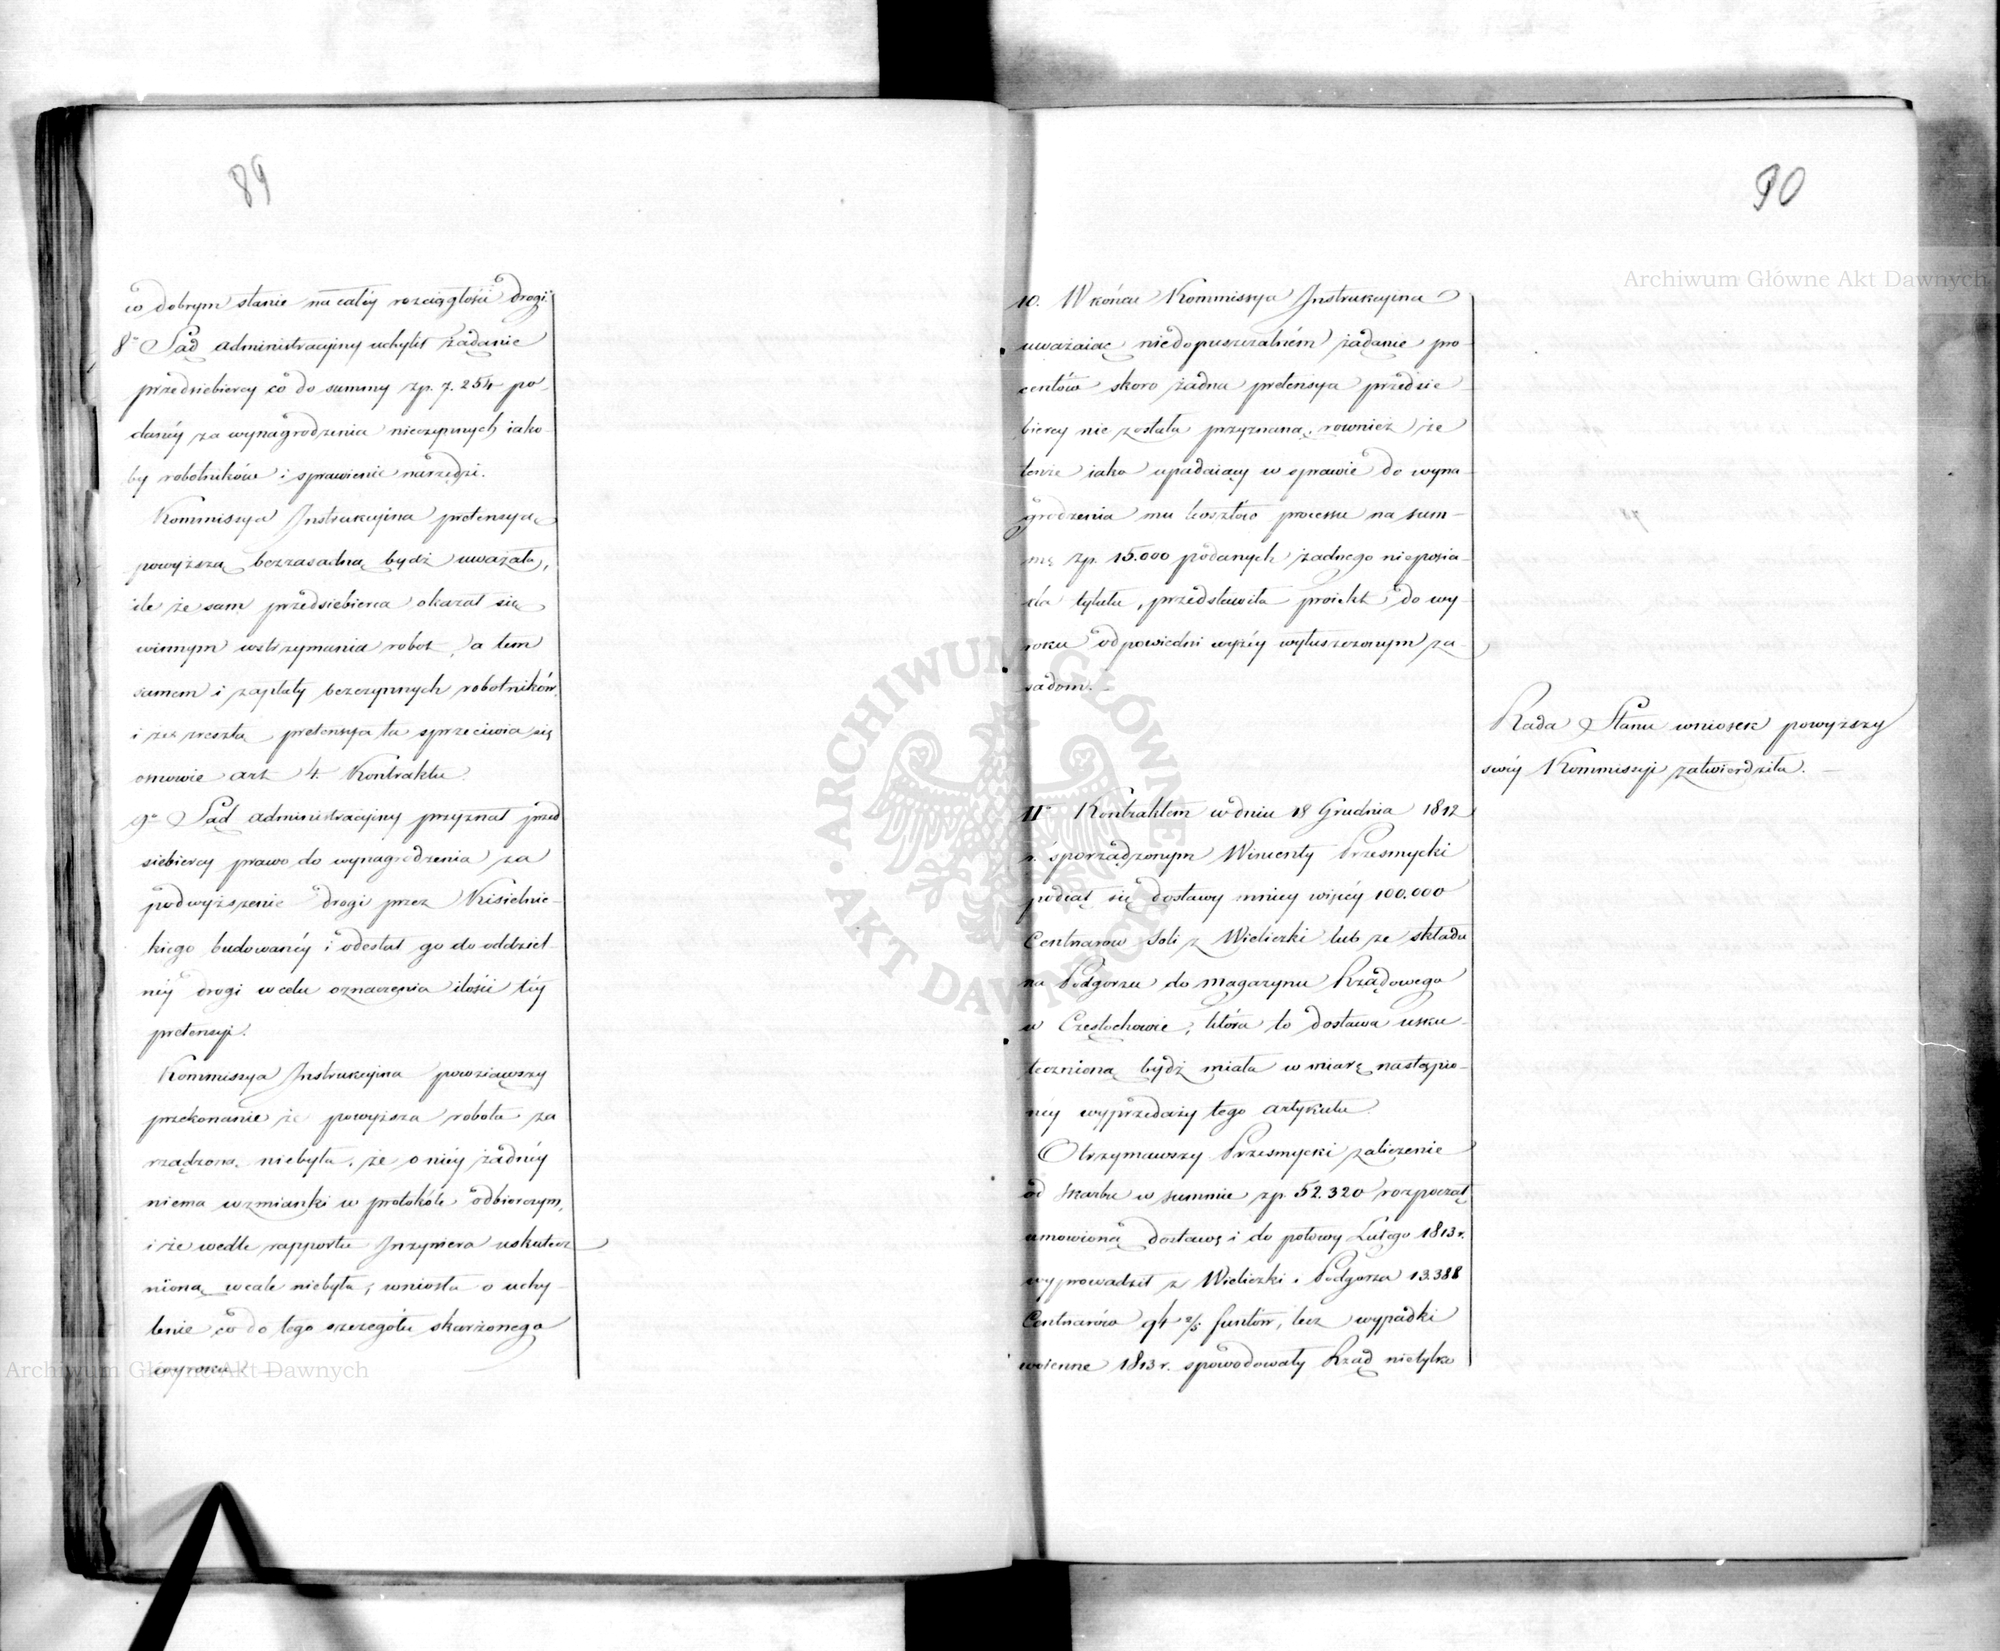 89
w dobrym stanie na całéy rozciągłości drogi.
8o Sąd administracyiny uchylił żądanie
przedsiebiercy co do summy zp. 7.254 po-
danéy za wynagrodzenia nieczynnych iako-
by robotników i sprawienie narzędzi.
Kommissya Instrukcyina pretensyą
powyższą bezzasadną bydź uważała,
ile że sam przedsiebierca okazał się
winnym wstrzymania robot, a tem
samem i zapłaty bezczynnych robotników,
i że zresztą pretensya ta sprzeciwia się
osnowie art. 4. Kontraktu.
9o Sąd administracyiny przyznał przed
siebiercy prawo do wynagrodzenia za
podwyższenie drogi przez Kisielnic-
kiego budowanéy i odesłał go do oddziel-
néy drogi w celu oznaczenia ilości téy
pretensyi.
Kommissya Instrukcyina powziąwszy
przekonanie że powyższa robota za
rządzoną niebyła, że o niéy żadnéy
niema wzmianki w protokóle odbiorczym,
i że wedle rapportu Inzyniera uskutecz
nioną wcale niebyła, wniosła o uchy-
lenie co do tego szczegółu skarżonego
wyroku.
90
10. W końcu Kommissya Instrukcyina
uważaiąc niedopuszczalném żądanie pro
centów skoro żadna pretensya przedsie
biercy nie została przyznaną, rownież że
tenże iako upadaiący w sprawie do wyna
grodzenia mu kosztów processu na sum-
mę zp. 15.000 podanych żadnego nieposia-
da tytułu, przedstawiła proiekt do wy-
roku odpowiedni wyżéy wyłuszczonym za-
sadom.
Rada Stanu wniosek powyższy
swéy Kommissyi zatwierdziła.
IIo Kontraktem w dniu 18 Grudnia 1812
r. sporządzonym Wincenty Przesmycki
podiął się dostawy mniéy więcéy 100.000
Centnarów soli z Wieliczki lub ze składu
na Podgorzu do magazynu Rządowego
w Częstochowie, która to dostawa usku-
tecznioną bydź miała w miarę nastąpio-
néy wyprzedaży tego artykułu.
Otrzymawszy Przesmycki zaliczenie
od skarbu w summie zp. 52.320 rozpoczął
umowioną dostawę i do połowy Lutego 1813 r.
wyprowadził z Wieliczki i Podgorza 13.388
Centnarów 94 2/5 funtów, lecz wypadki
woienne 1813 r. spowodowały Rząd nietylko
Archiwum Główne Akt Dawnych
Archiwum Główne Akt Dawnych
ARCHIWUM GŁÓWNE AKT DAWNYCH